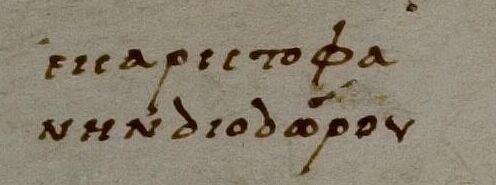 εις αριστοφά
νην διοδώρου